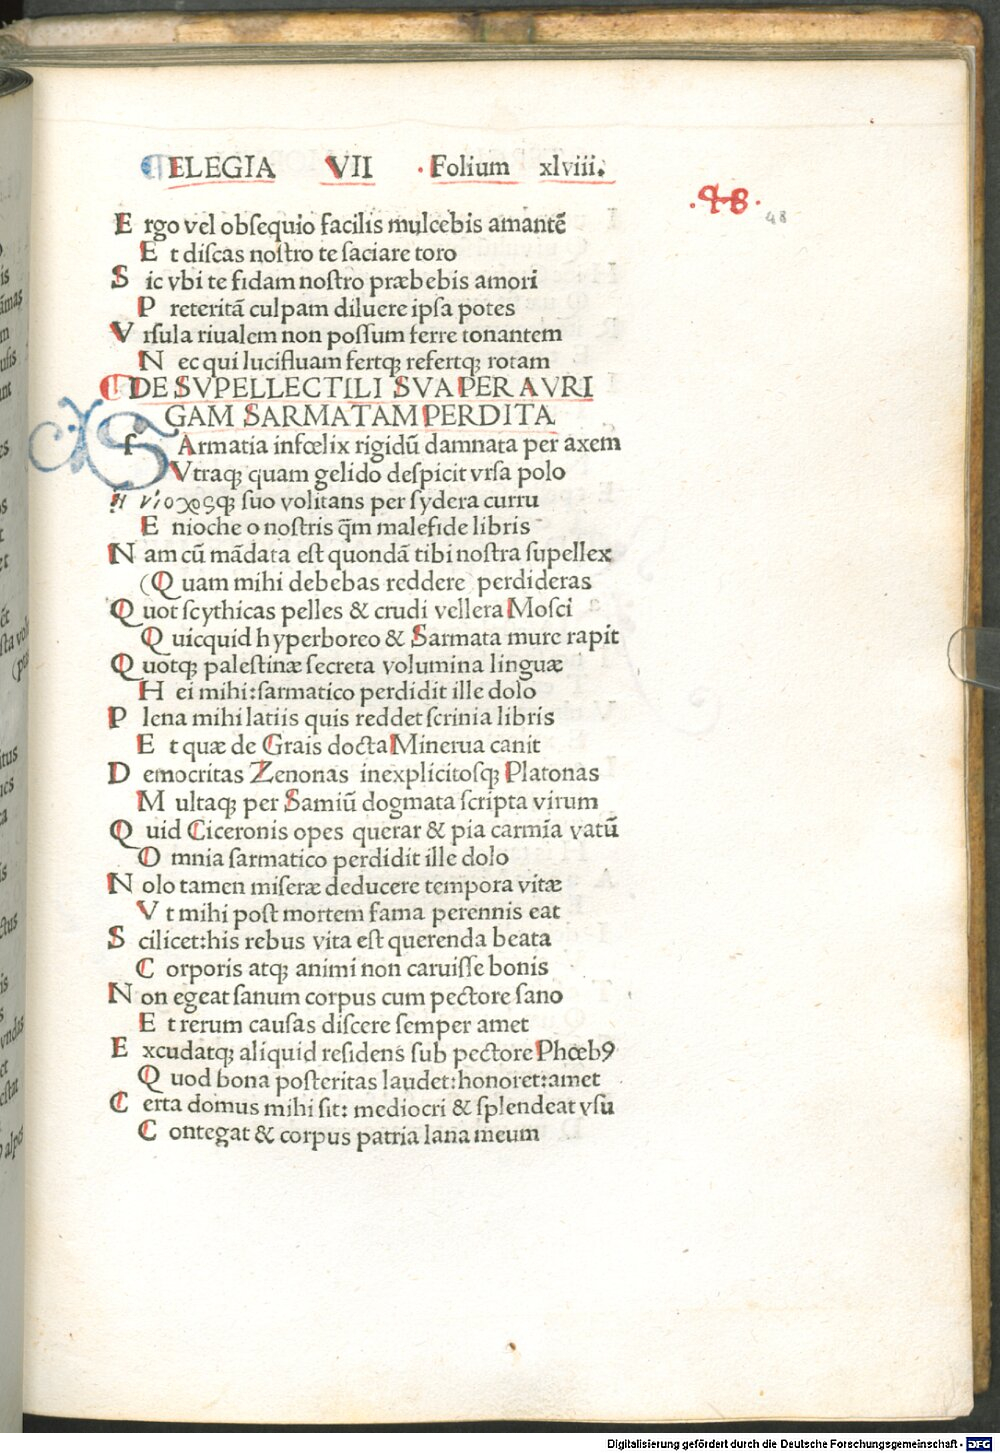 ELEGIA VII Folium xlviii.
.48.
48
E rgo vel obſequio facilis mulcebis amantē
E t diſcas noſtro te ſaciare toro
S ic vbi te fidam noſtro præbebis amori
P reteritā culpam diluere ipſa potes
V rſula riualem non poſſum ferre tonantem
N ec qui lucifluam fertqꝫ refertqꝫ rotam
DE SVPELLECTILI SVA PER AVRI
GAM SARMATAM PERDITA
SArmatia infœlix rigidū damnata per axem
Vtraqꝫ quam gelido deſpicit vrſa polo
Ηνίοχοςqꝫ ſuo volitans per ſydera curru
E nioche o noſtris q̄m malefide libris
N am cū mādata eſt quondā tibi noſtra ſupellex
(Q uam mihi debebas reddere) perdideras
Q uot ſcythicas pelles & crudi vellera Moſci
Q uicquid hyperboreo & Sarmata mure rapit
Q uotqꝫ paleſtinæ ſecreta volumina linguæ
H ei mihi:ſarmatico perdidit ille dolo
P lena mihi latiis quis reddet ſcrinia libris
E t quæ de Grais docta Minerua canit
D emocritas Zenonas inexplicitoſqꝫ Platonas
M ultaqꝫ per Samiū dogmata ſcripta virum
Q uid Ciceronis opes querar & pia carmīa vatū
O mnia ſarmatico perdidit ille dolo
N olo tamen miſeræ deducere tempora vitæ
V t mihi poſt mortem fama perennis eat
S cilicet:his rebus vita eſt querenda beata
C orporis atqꝫ animi non caruiſſe bonis
N on egeat ſanum corpus cum pectore ſano
E t rerum cauſas diſcere ſemper amet
E xcudatqꝫ aliquid reſidens ſub pectore Phœbꝰ
Q uod bona poſteritas laudet:honoret:amet
C erta domus mihi ſit: mediocri & ſplendeat vſu
C ontegat & corpus patria lana meum
Digitalisierung gefördert durch die Deutsche Forschungsgemeinschaft - DFG